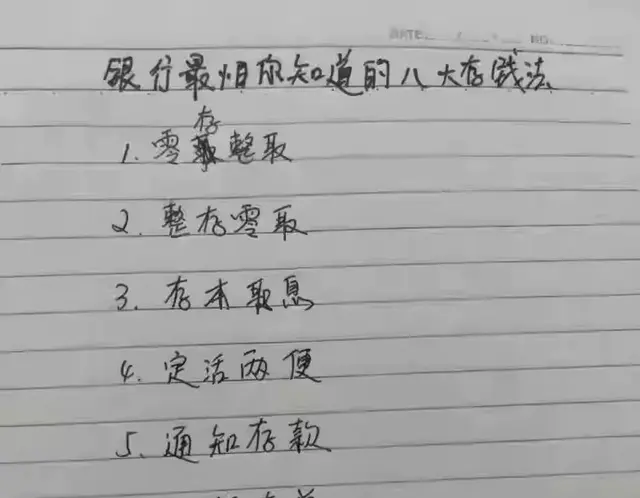 DATE. NO.
银行最怕你知道的八大存钱法
1. 零存整取
2. 整存零取
3. 存本取息
4. 定活两便
5. 通知存款